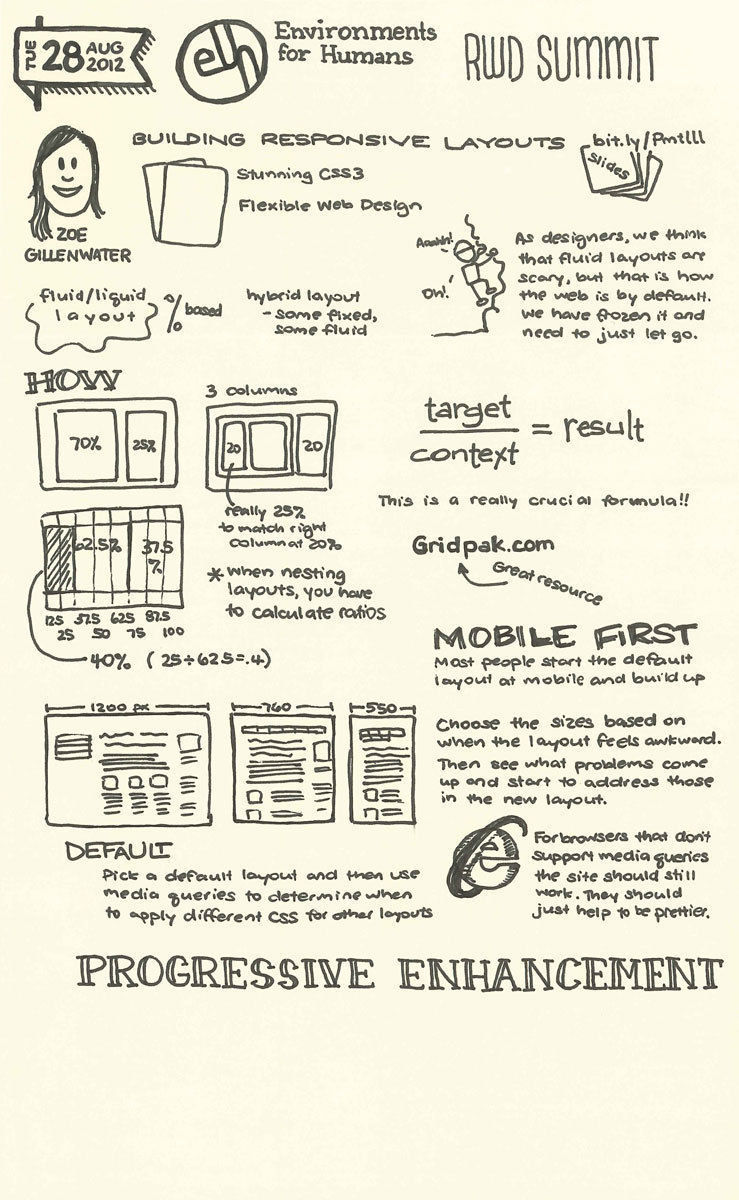 TUE 28 AUG 2012
eh
Environments
for Humans
RWD SUMMIT
BUILDING RESPONSIVE LAYOUTS
bit.ly/Pmtlll
Slides
Stunning CSS3
Flexible Web Design
ZOE
GILLENWATER
Aaahh!
Oh!
As designers, we think
that fluid layouts are
scary, but that is how
the web is by default.
We have frozen it and
need to just let go.
fluid/liquid
layout
% based
hybrid layout
- some fixed,
some fluid
HOW
70% 25%
3 columns
20 20
really 25%
to match right
column at 20%
target
context
= result
This is a really crucial formula!!
62.5% 37.5
%
12.5 37.5 62.5 87.5
25 50 75 100
40% (25÷62.5=.4)
* When nesting
layouts, you have
to calculate ratios
Gridpak.com
Great resource
MOBILE FIRST
Most people start the default
layout at mobile and build up
1200 px 760 550
Choose the sizes based on
when the layout feels awkward.
Then see what problems come
up and start to address those
in the new layout.
DEFAULT
Pick a default layout and then use
media queries to determine when
to apply different CSS for other layouts
e
For browsers that don't
support media queries
the site should still
work. They should
just help to be prettier.
PROGRESSIVE ENHANCEMENT